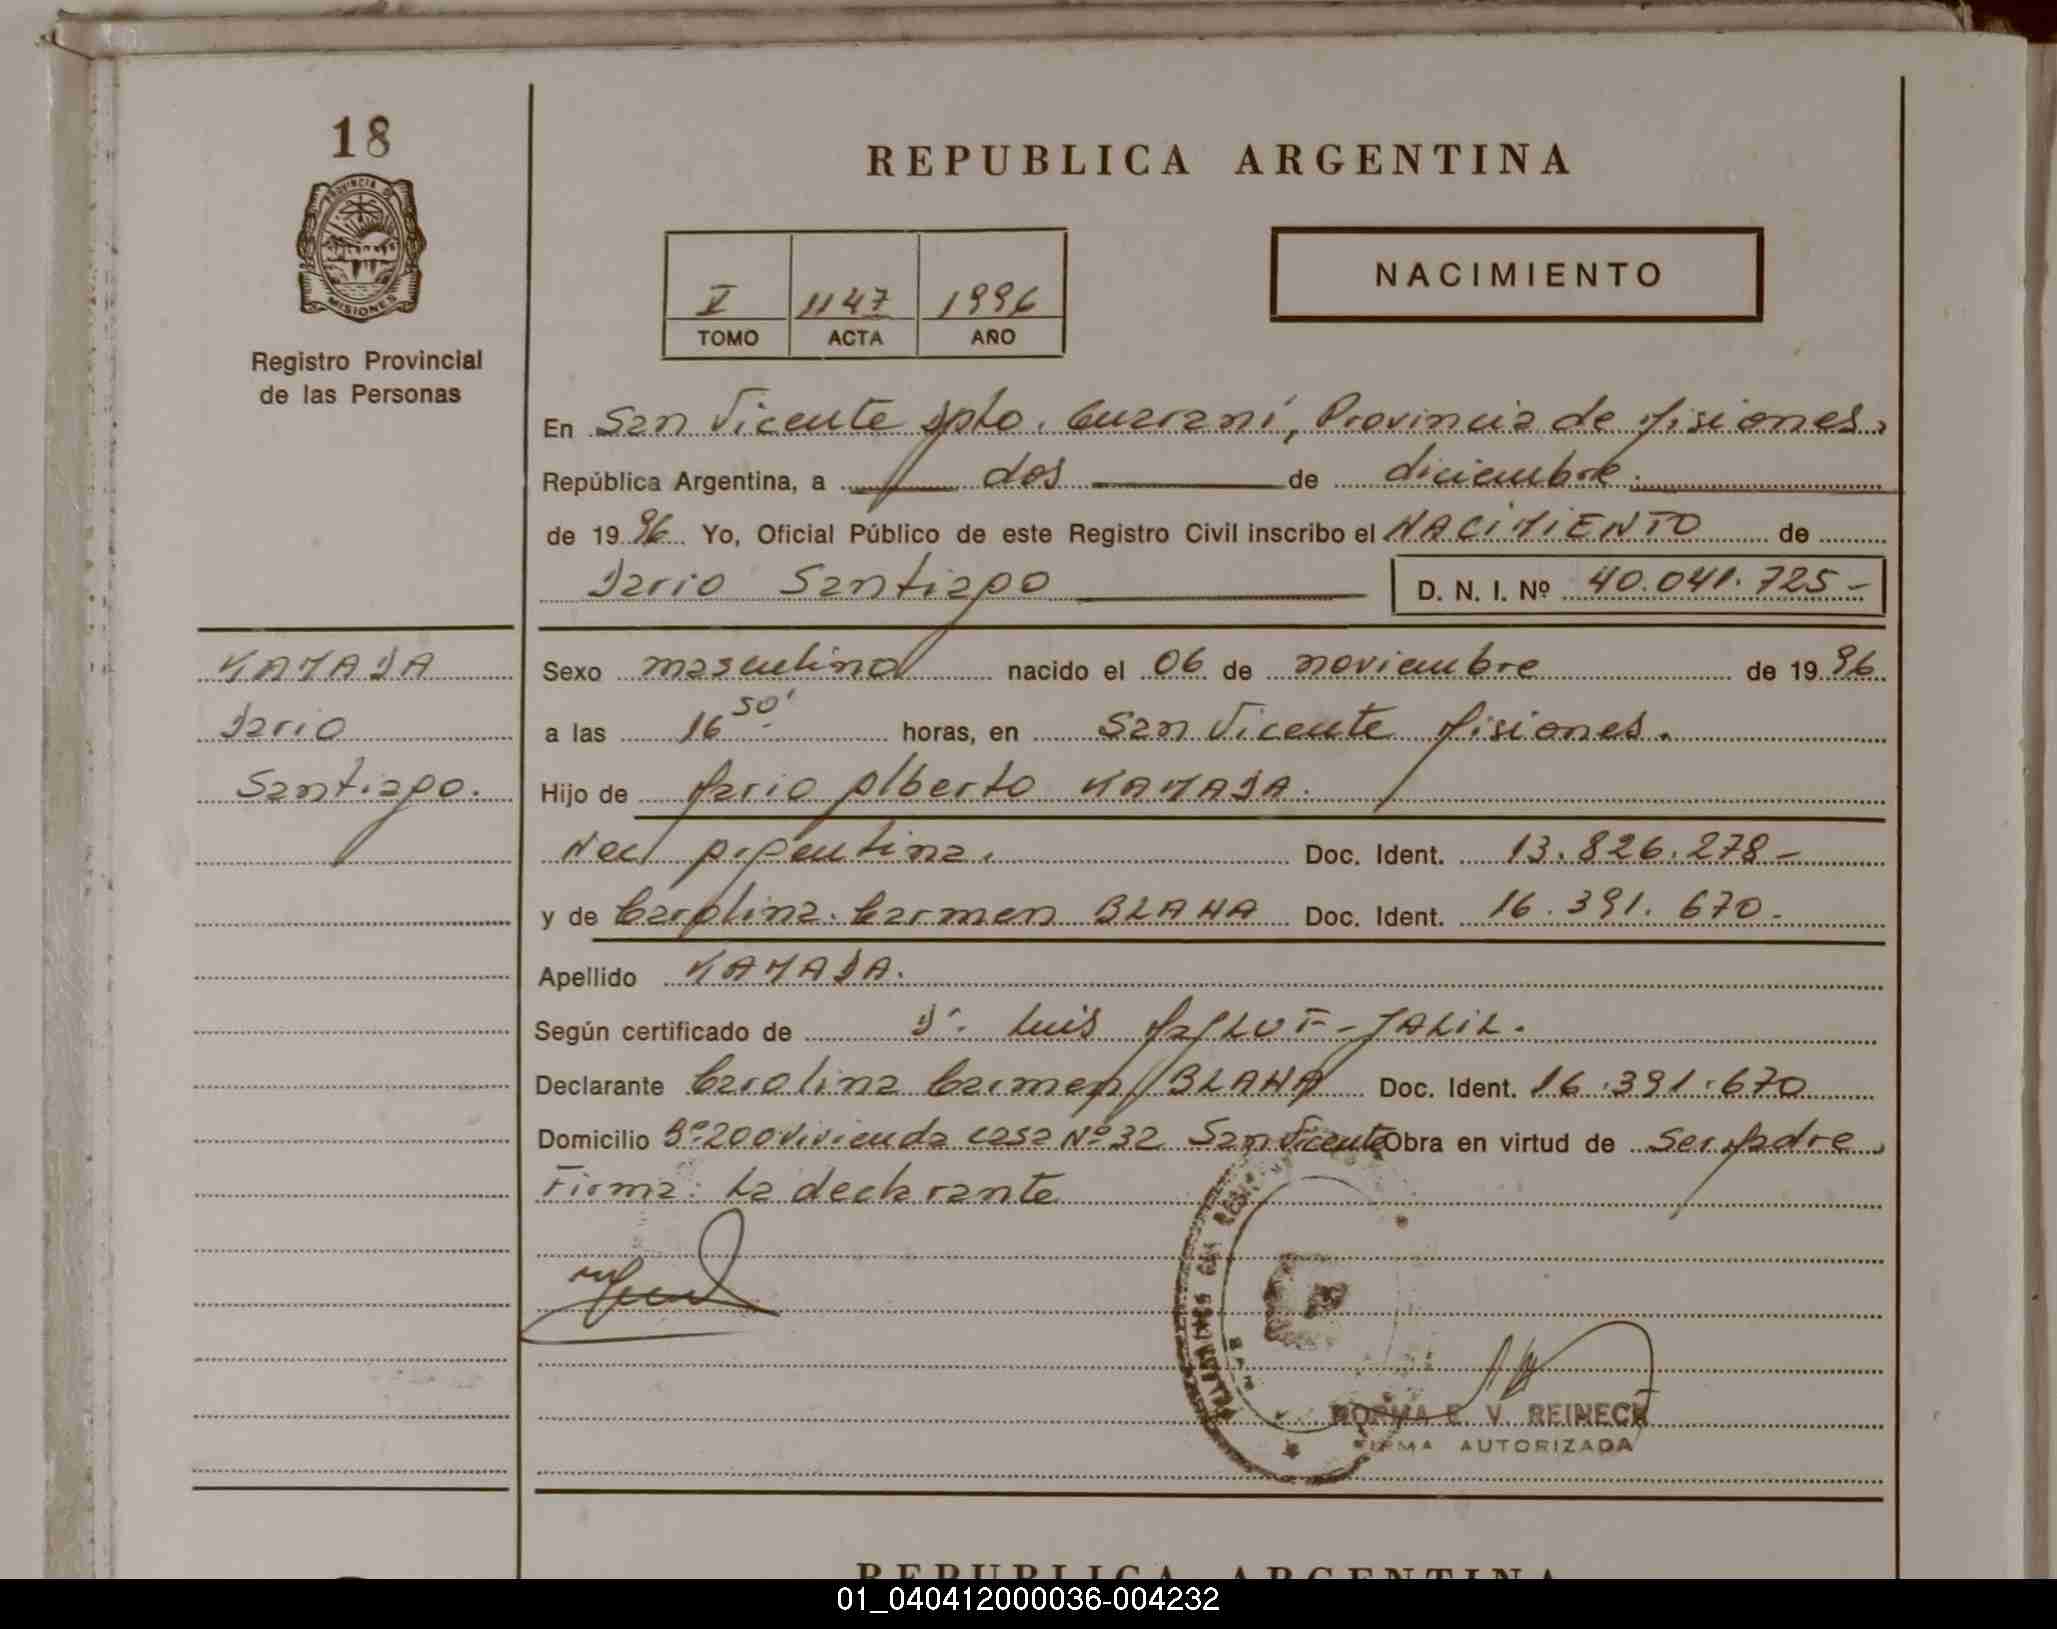 18
PROVINCIA DE
MISIONES
Registro Provincial
de las Personas
REPUBLICA ARGENTINA
V 1147 1996
TOMO ACTA AÑO
NACIMIENTO
En San Vicente Dpto. Guaraní, Provincia de Misiones,
República Argentina, a dos de diciembre.
de 19 96 Yo, Oficial Público de este Registro Civil inscribo el NACIMIENTO de
Dario Santiago D. N. I. Nº 40.041.725-
KAMADA
Dario
Santiago.
Sexo masculino nacido el 06 de noviembre de 19 96
a las 16 50' horas, en San Vicente Misiones.
Hijo de Mario Alberto KAMADA.
Nac Argentina. Doc. Ident. 13.826.278-
y de Carolina Carmen BLAHA Doc. Ident. 16.391.670.
Apellido KAMADA.
Según certificado de Dr. Luis JALIL.
Declarante Carolina Carmen BLAHA Doc. Ident. 16.391.670
Domicilio Bº 200 vivienda casa Nº 32 San Vicente Obra en virtud de ser Madre.
Firma: La declarante
NORMA E. V. REINECK
FIRMA AUTORIZADA
REPUBLICA ARGENTINA
01_040412000036-004232